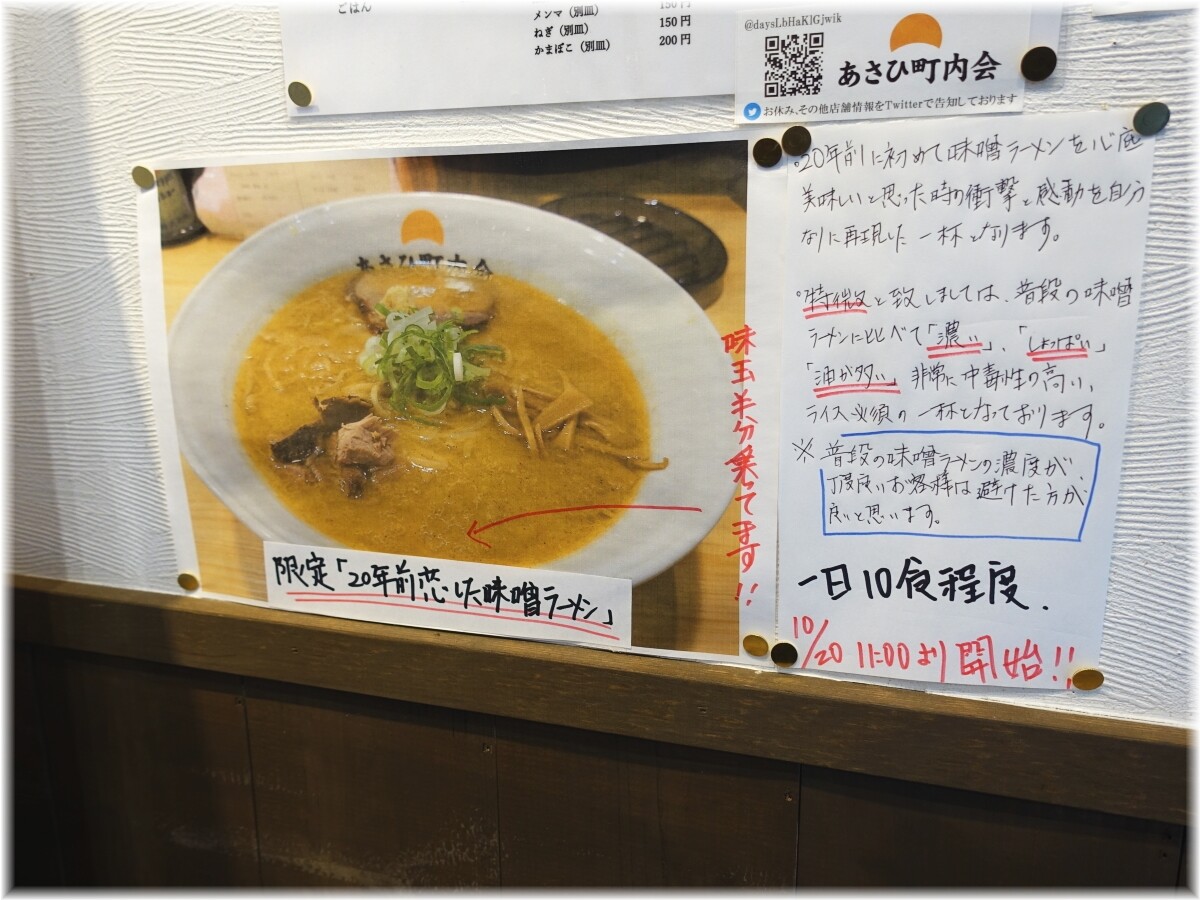 ごはん
メンマ（別皿） 150円
ねぎ（別皿） 150円
かまぼこ（別皿） 200円
@daysLbHaKlGjwik
あさひ町内会
お休み、その他店舗情報をTwitterで告知しております
あさひ町内会
味玉半分乗ってます!!
限定「20年前恋した味噌ラーメン」
○20年前に初めて味噌ラーメンを心底
美味いと思った時の衝撃と感動を自分
なりに再現した一杯となります。
○特徴と致しましては、普段の味噌
ラーメンにくらべて「濃い」、「しょっぱい」
「油が多い」非常に中毒性の高い、
ライス必須の一杯となっております。
※普段の味噌ラーメンの濃度が
丁度良いお客様は避けた方が
良いと思います。
一日10食程度.
10/20 11:00より開始!!